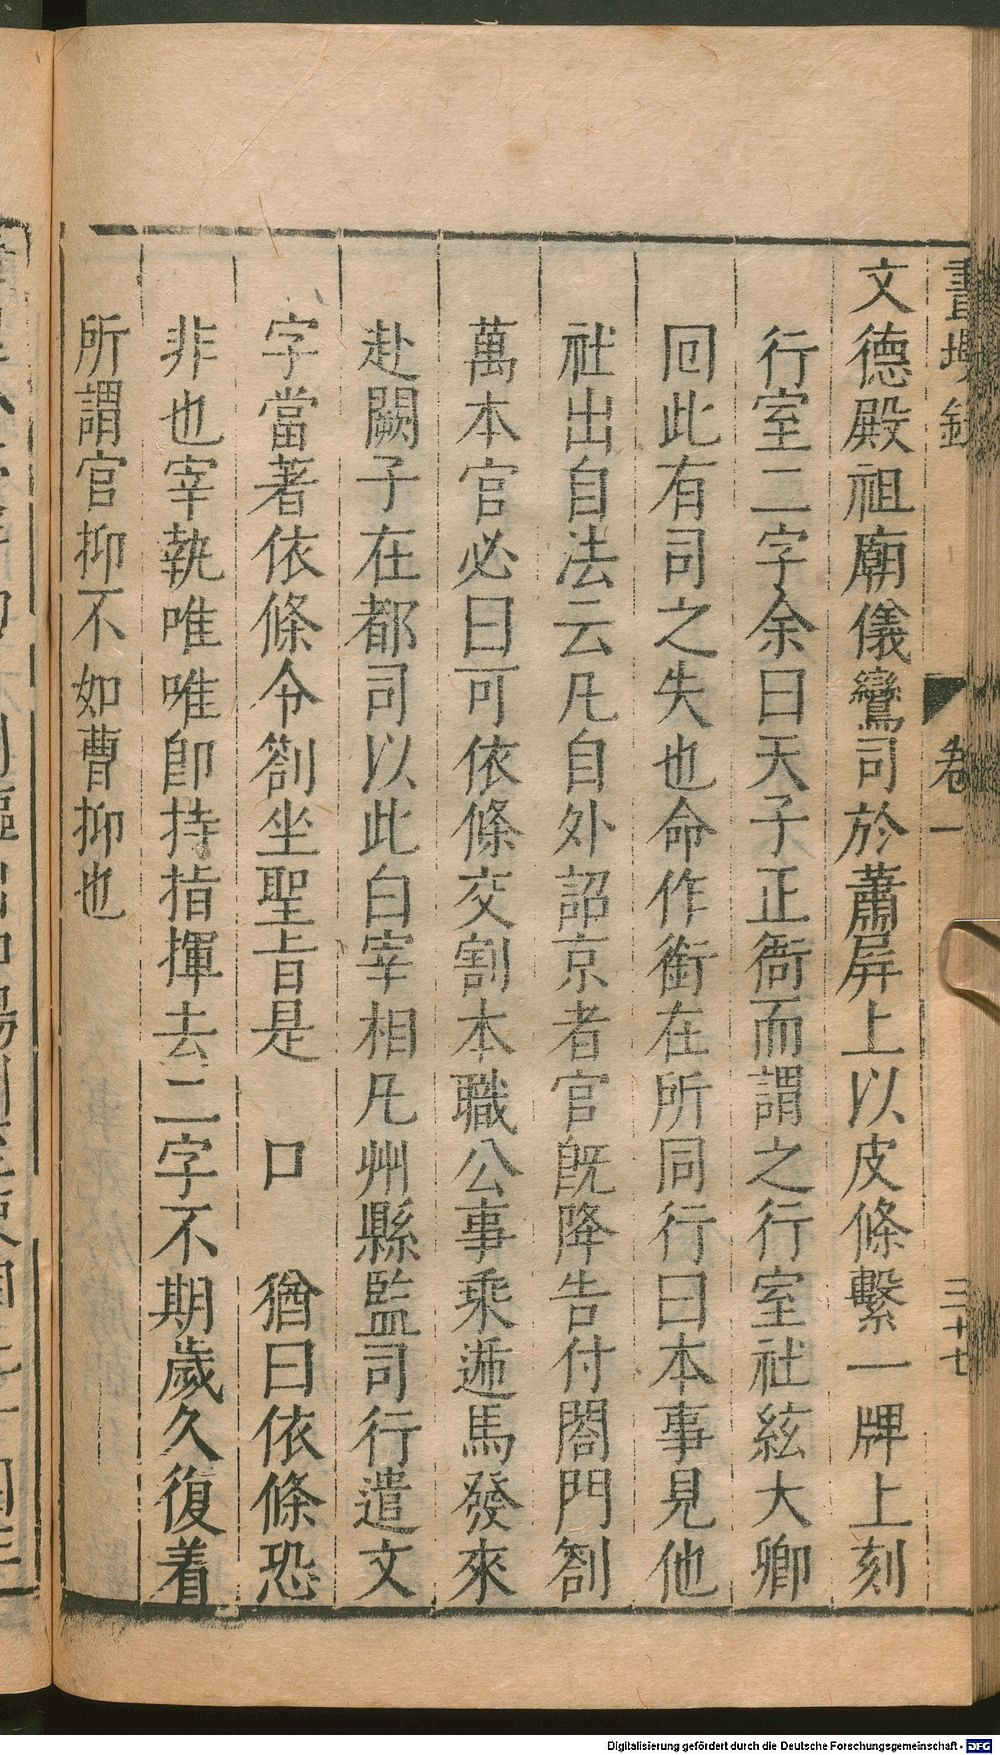 畫墁錄
卷一
三十七
文德殿祖廟儀鸞司於蕭屛上以皮條繫一牌上刻
行室二字余曰天子正衙而謂之行室社絃大卿
回此有司之失也命作銜在所同行曰本事見他
社出自法云凡自外詔京者官旣降告付閤門劄
萬本官必曰可依條交割本職公事乘遞馬發來
赴闕子在都司以此白宰相凡州縣監司行遣文
字當著依條令劄坐聖旨是 口 猶曰依條恐
非也宰執唯唯卽持指揮去二字不期歲久復着
所謂官抑不如曹抑也
Digitalisierung gefördert durch die Deutsche Forschungsgemeinschaft - DFG